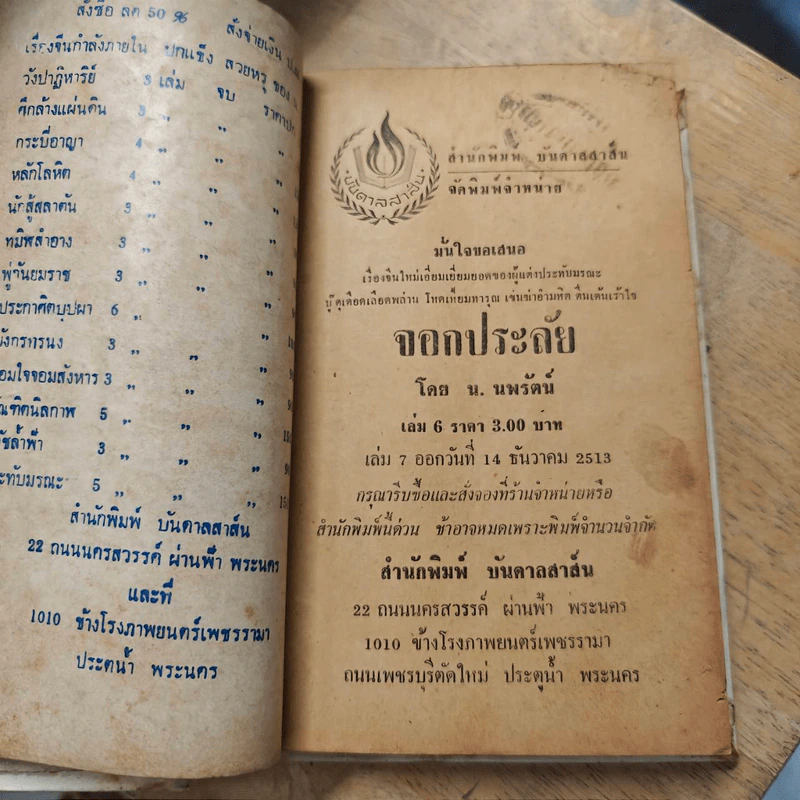 สั่งซื้อ ลด 50 %
สั่งจ่ายเงิน
เรื่องจีนกำลังภายใน ปกแข็ง สวยหรู ของ
วังปาฏิหาริย์ 3 เล่ม จบ
ศึกล้างแผ่นดิน 3 „ „
กระบี่อาญา 4 „ „
หลักโลหิต 4 „ „
นักสู้สลาตัน 3 „ „
ทมิฬสำอาง 3 „ „
พู่กันยมราช 3 „ „
ประกาศิตบุปผา 6 „ „
3 „ „
3 „ „
5 „ „
3 „ „
5 „ „
สำนักพิมพ์ บันดาลสาส์น
22 ถนนนครสวรรค์ ผ่านฟ้า พระนคร
และที่
1010 ข้างโรงภาพยนตร์เพชรรามา
ประตูน้ำ พระนคร
บันดาลสาส์น
สำนักพิมพ์ บันดาลสาส์น
จัดพิมพ์จำหน่าย
มั่นใจขอเสนอ
เรื่องจีนใหม่เอี่ยมเยี่ยมยอดของผู้แต่งประทับมรณะ
บู๊ดุเดือดเลือดพล่าน โหดเหี้ยมทารุณ เข่นฆ่าอำมหิต ตื่นเต้นเร้าใจ
จอกประลัย
โดย น. นพรัตน์
เล่ม 6 ราคา 3.00 บาท
เล่ม 7 ออกวันที่ 14 ธันวาคม 2513
กรุณารีบซื้อและสั่งจองที่ร้านจำหน่ายหรือ
สำนักพิมพ์นี้ด่วน ช้าอาจหมดเพราะพิมพ์จำนวนจำกัด
สำนักพิมพ์ บันดาลสาส์น
22 ถนนนครสวรรค์ ผ่านฟ้า พระนคร
1010 ข้างโรงภาพยนตร์เพชรรามา
ถนนเพชรบุรีตัดใหม่ ประตูน้ำ พระนคร